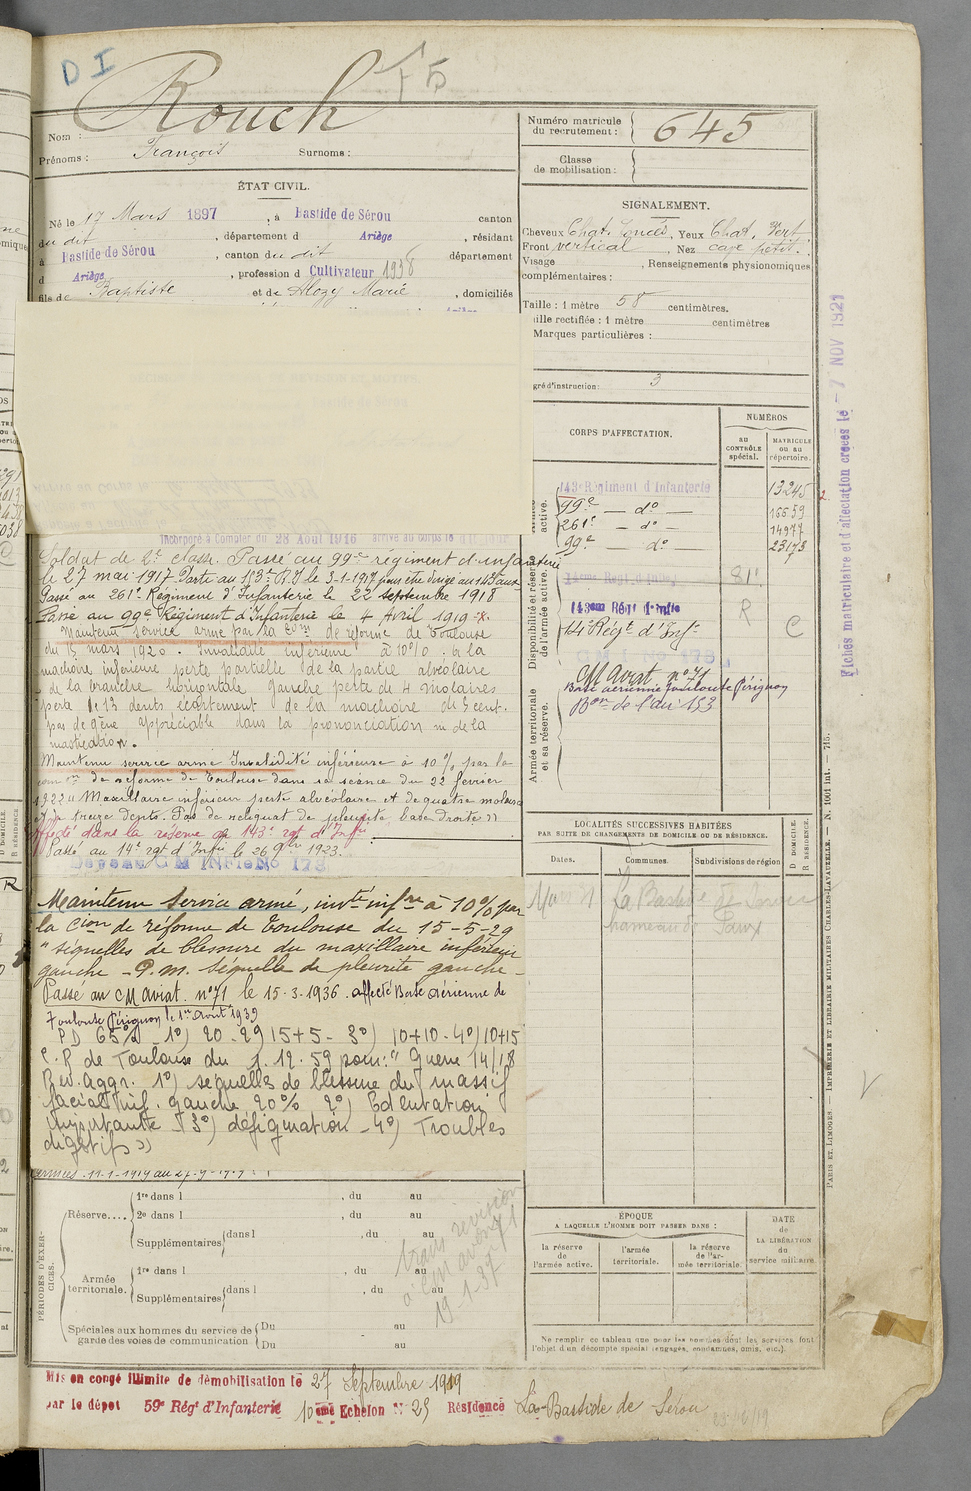 D I
Rouch
F 5
Nom :
Prénoms : François Surnoms :
Numéro matricule
du recrutement : 645
Classe
de mobilisation :
ÉTAT CIVIL.
Né le 17 Mars 1897, à Bastide de Sérou canton
du dit, département d Ariège, résidant
à Bastide de Sérou, canton du dit département
d Ariège, profession d Cultivateur 1938
fils de Baptiste et de Alozy Marie, domiciliés
SIGNALEMENT.
Cheveux Chat. foncés, Yeux Chat. Vert
Front vertical, Nez cave petit.
Visage, Renseignements physionomiques
complémentaires :
Taille : 1 mètre 58 centimètres.
ille rectifiée : 1 mètre centimètres
Marques particulières :
gré d'instruction : 3
CORPS D'AFFECTATION.
NUMÉROS
au
CONTRÔLE
spécial.
MATRICULE
ou au
répertoire.
Armée
active.
143e Régiment d'Infanterie 13245
99e — do — 16659
261e — do — 14977
99e — do — 23173
Disponibilité et réserve
de l'armée active.
811
143eme Régt d'Infie R
14e Régt d'Infie C
G M I No 173
Armée territoriale
et sa réserve.
CM Aviat. no 71
Base aérienne Toulouse Pérignon
Bon de l'air 153
Fiches matriculaire et d'affectation créées le 7 NOV 1921
Incorporé à Compter du 28 Août 1916 arrivé au corps le dit jour
Soldat de 2e classe. Passé au 99e régiment d'infanterie
le 27 mai 1917
Passé au 261e Régiment d'Infanterie le 22 septembre 1918
Passé au 99e Régiment d'Infanterie le 4 Avril 1919
Maintenu service armé par la Com de réforme de Toulouse
du 15 mars 1920. Invalidité inférieure à 10% : à la
machoire inférieure perte partielle de la partie alvéolaire
de la branche horizontale gauche perte de 4 molaires
perte de 13 dents écartement de la machoire de 3 cent.
pas de gêne appréciable dans la prononciation ni de la
mastication.
Maintenu service armé Invalidité inférieure à 10% par la
de réforme de Toulouse dans sa séance du 22 février
1922 " Maxillaire inférieur perte alvéolaire et de quatre molaires
treize dents. Pas de reliquat de pleurite base Droite "
Affecté dans la réserve au 143e rgt d'Infie
Passé au 14e rgt d'Infie le 26 9bre 1923.
G M I No 173
Maintenu Service armé, invté infre à 10% par
la Cion de réforme de Toulouse du 15-5-29
" séquelles de blessure du maxillaire inférieur
gauche - P.m. séquelle de pleurite gauche -
Passé au CM Aviat. no 71 le 15-3-1936. affecté Base Aérienne de
Toulouse Pérignon le 1er Avril 1939
PD 65% - 1o) 20 - 2o) 15+5 - 3o) 10+10 - 4o) 10+15
C.R de Toulouse du 1.12.59 pour : " Guerre 14/18
Rev. Aggr. 1o) sequelles de blessure du massif
facial inf. gauche 20% 2o) Edentation
importante - 3o) défiguration - 4o) Troubles
digestifs "
LOCALITÉS SUCCESSIVES HABITÉES
PAR SUITE DE CHANGEMENTS DE DOMICILE OU DE RÉSIDENCE.
Dates. Communes. Subdivisions de région
D DOMICILE.
R RÉSIDENCE.
La Bastide de Sérou
hameau de
PÉRIODES D'EXERCICES.
Réserve....
1re dans l , du au
2e dans l , du au
Supplémentaires dans l , du au
Armée
territoriale.
1re dans l , du au
Supplémentaires dans l , du au
Spéciales aux hommes du service de
garde des voies de communication
Du au
Du au
trans revision
a CM avion 71
19-1-37
ÉPOQUE
A LAQUELLE L'HOMME DOIT PASSER DANS :
la réserve
de
l'armée active.
l'armée
territoriale.
la réserve
de l'ar-
mée territoriale.
DATE
de
LA LIBÉRATION
du
service militaire.
Ne remplir ce tableau que pour les hommes dont les services font
l'objet d'un décompte spécial (engagés, condamnés, omis, etc.).
PARIS ET LIMOGES. — IMPRIMERIE ET LIBRAIRIE MILITAIRES CHARLES-LAVAUZELLE. — N. 1001 int. — 715.
Mis en congé illimité de démobilisation le 27 Septembre 1919
par le dépôt 59e Régt d'Infanterie 10eme Echelon No 23 Résidence La Bastide de Sérou